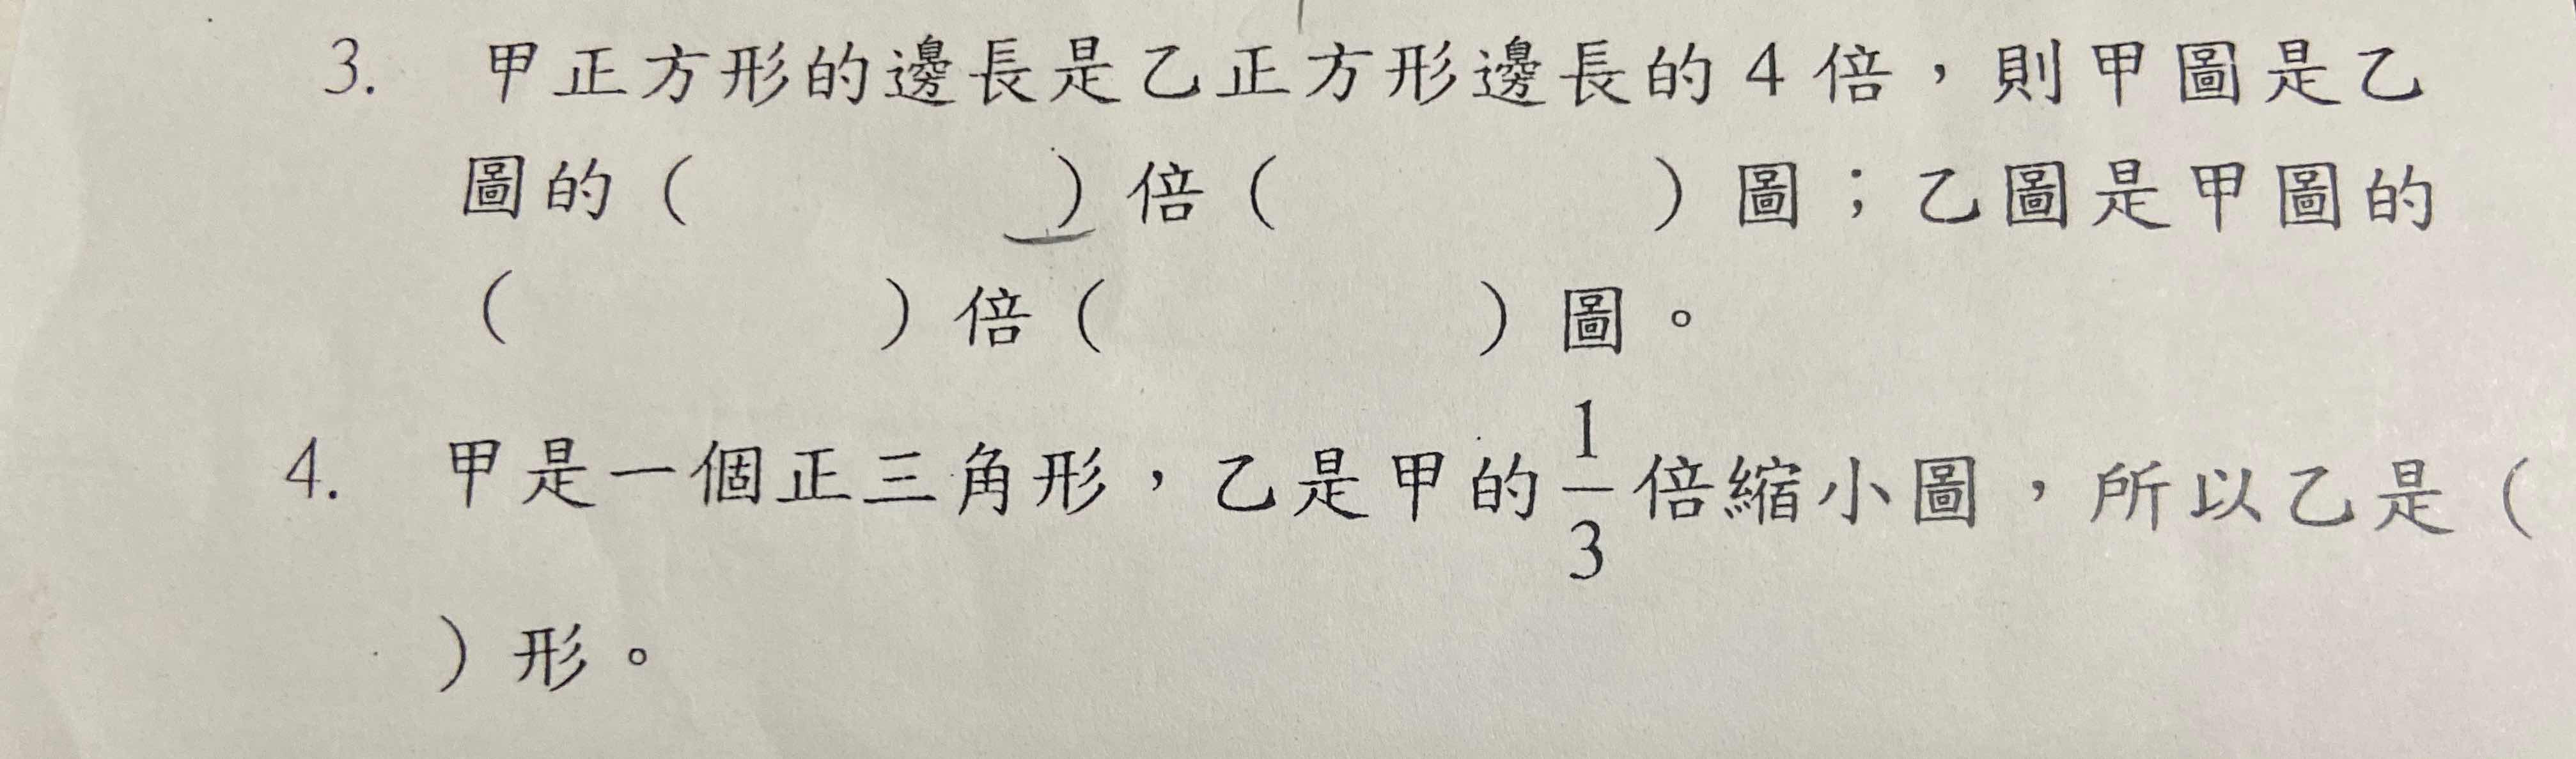 3. 甲正方形的邊長是乙正方形邊長的4倍，則甲圖是乙
圖的（　　　　）倍（　　　　）圖；乙圖是甲圖的
（　　　　）倍（　　　　）圖。
4. 甲是一個正三角形，乙是甲的1/3倍縮小圖，所以乙是（
）形。